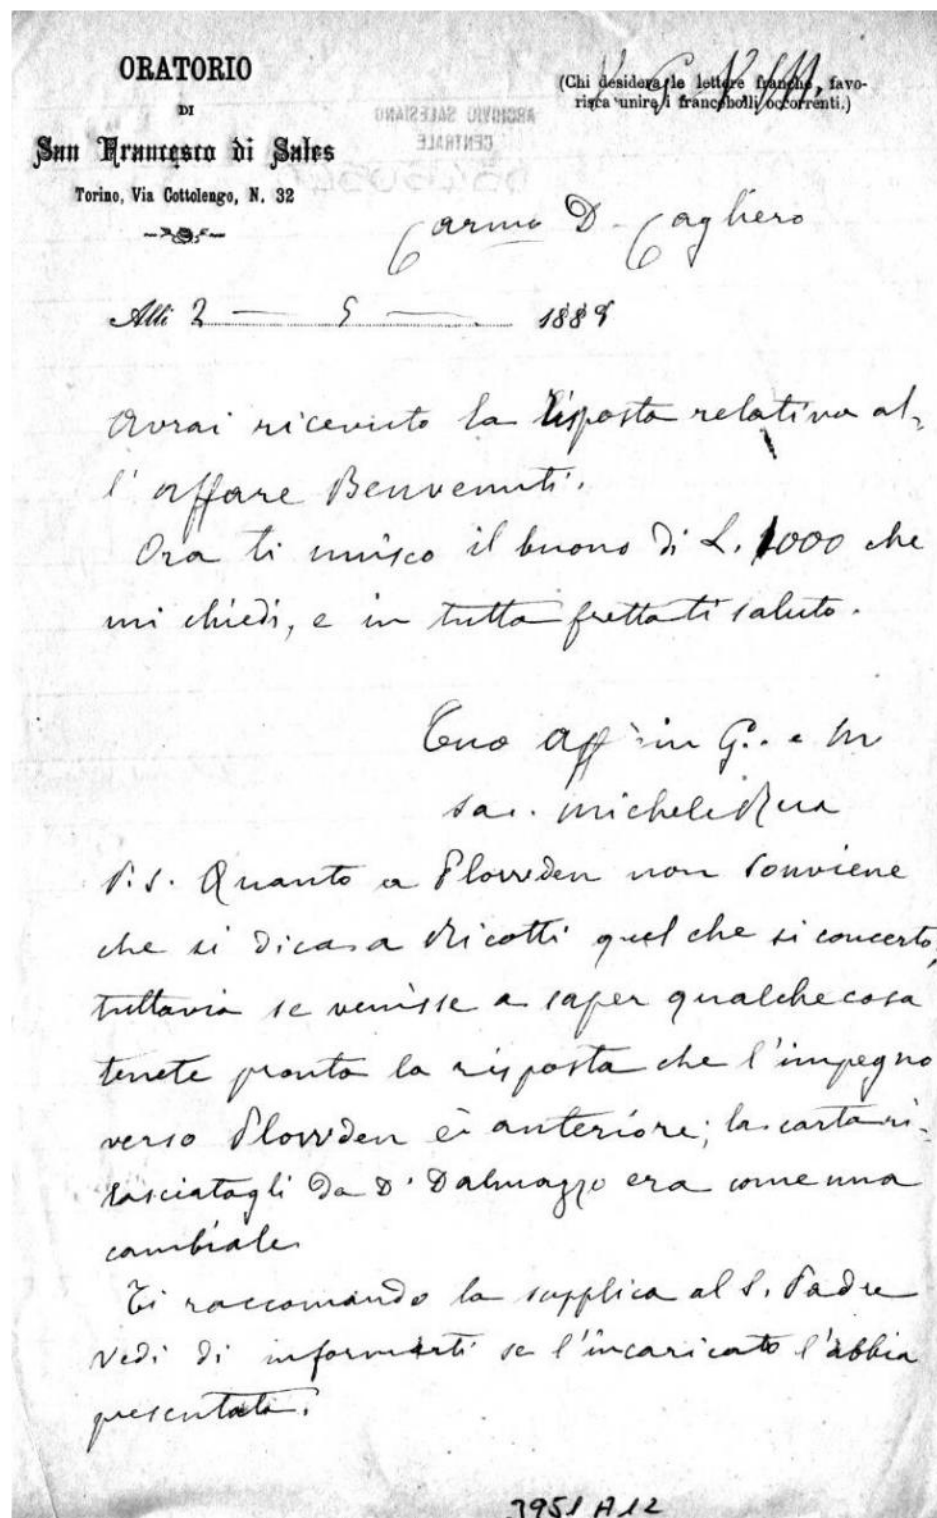 ORATORIO
DI
San Francesco di Sales
Torino, Via Cottolengo, N. 32
(Chi desidera le lettere franche, favo-
risca unire i francobolli occorrenti.)
ARCHIVIO SALESIANO
CENTRALE
Carmo D. Cagliero
Alli 2 — 5 — 1889
Avrai ricevuto la risposta relativa al-
l'affare Benvenuti.
Ora ti unisco il buono di L. 1000 che
mi chiedi, e in tutta fretta ti saluto.
Tuo aff in G. e M
sac. Michele Rua
P.S. Quanto a Plowden non conviene
che si dica a Ricotti quel che si concertò,
tuttavia se venisse a saper qualche cosa
tenete pronta la risposta che l'impegno
verso Plowden è anteriore; la carta ri-
lasciatagli da D. Dalmazzo era come una
cambiale
Ti raccomando la supplica al S. Padre
Vedi di informarti se l'incaricato l'abbia
presentata.
3951 A 12